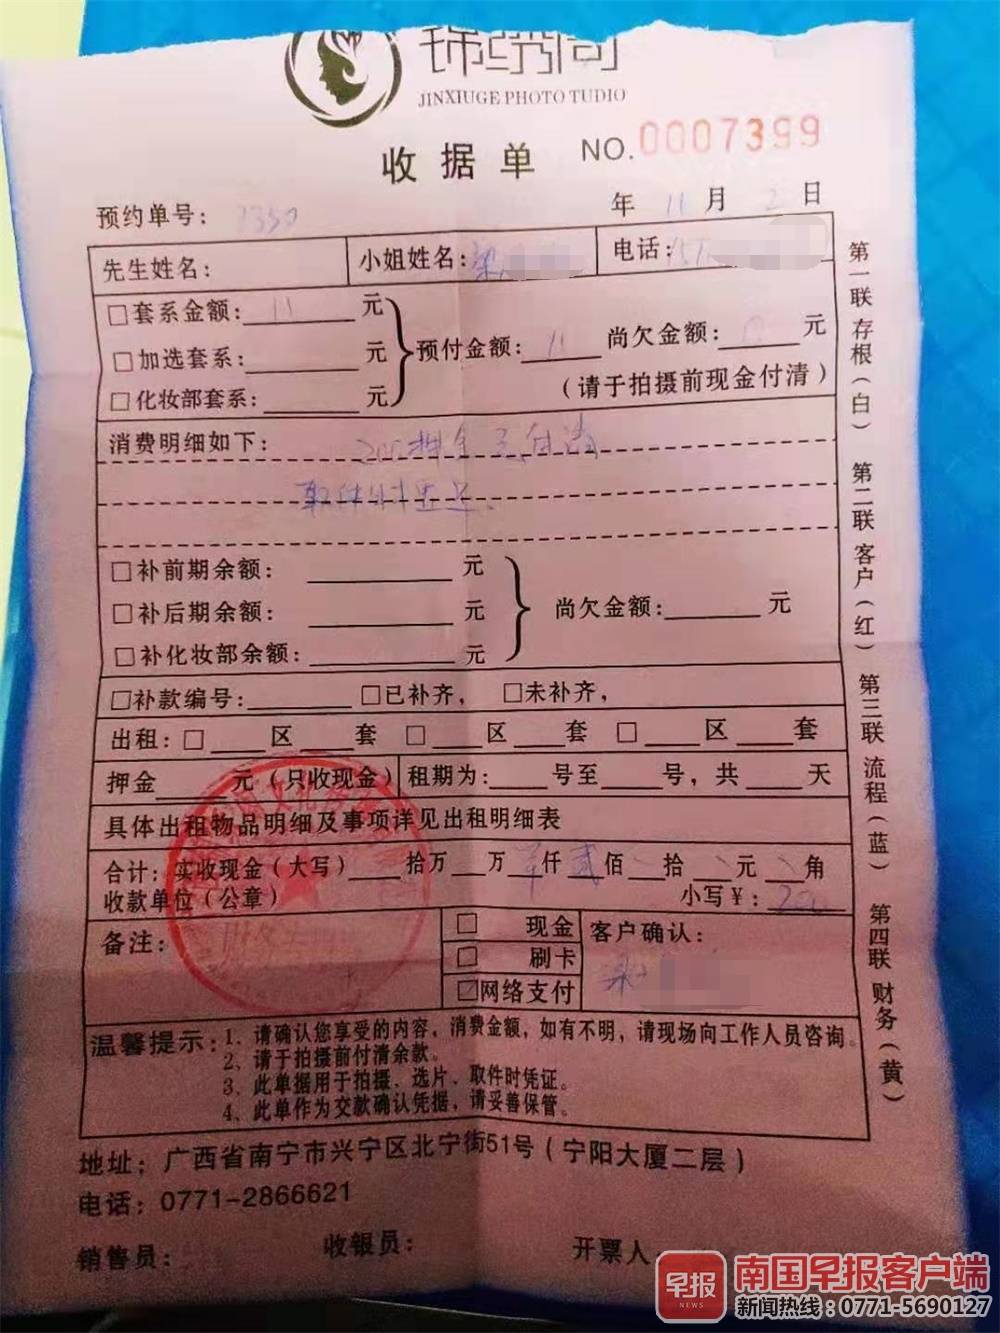 锦绣阁
JINXIUGE PHOTO TUDIO
收据单 NO.0007399
预约单号: 7350 年 11 月 2 日
先生姓名: 小姐姓名: 梁 电话: 157
□套系金额: 11 元 预付金额: 11 尚欠金额: 0 元
□加选套系: 元
□化妆部套系: 元 (请于拍摄前现金付清)
消费明细如下: 200押金已付清
取件时退还.
□补前期余额: 元
□补后期余额: 元 尚欠金额: 元
□补化妆部余额: 元
□补款编号: □已补齐, □未补齐,
出租: □ 区 套 □ 区 套 □ 区 套
押金 元 (只收现金) 租期为: 号至 号, 共 天
具体出租物品明细及事项详见出租明细表
合计: 实收现金 (大写) 拾万 万 仟 贰 佰 拾 元 角
收款单位 (公章) 小写¥: 200
备注: □ 现金 客户确认: 梁
□ 刷卡
☑网络支付
温馨提示: 1、请确认您享受的内容, 消费金额, 如有不明, 请现场向工作人员咨询。
2、请于拍摄前付清余款。
3、此单据用于拍摄、选片、取件时凭证。
4、此单作为交款确认凭据, 请妥善保管。
地址: 广西省南宁市兴宁区北宁街51号 (宁阳大厦二层)
电话: 0771-2866621
销售员: 收银员: 开票人
第一联 存根 (白) 第二联 客户 (红) 第三联 流程 (蓝) 第四联 财务 (黄)
早报
NEWS
南国早报客户端
新闻热线: 0771-5690127